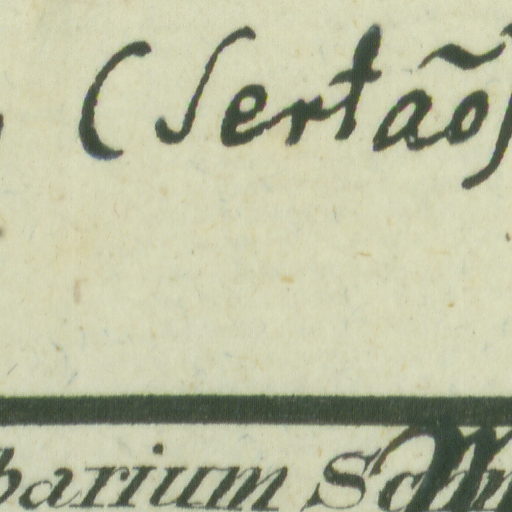 (Sertão)
barium